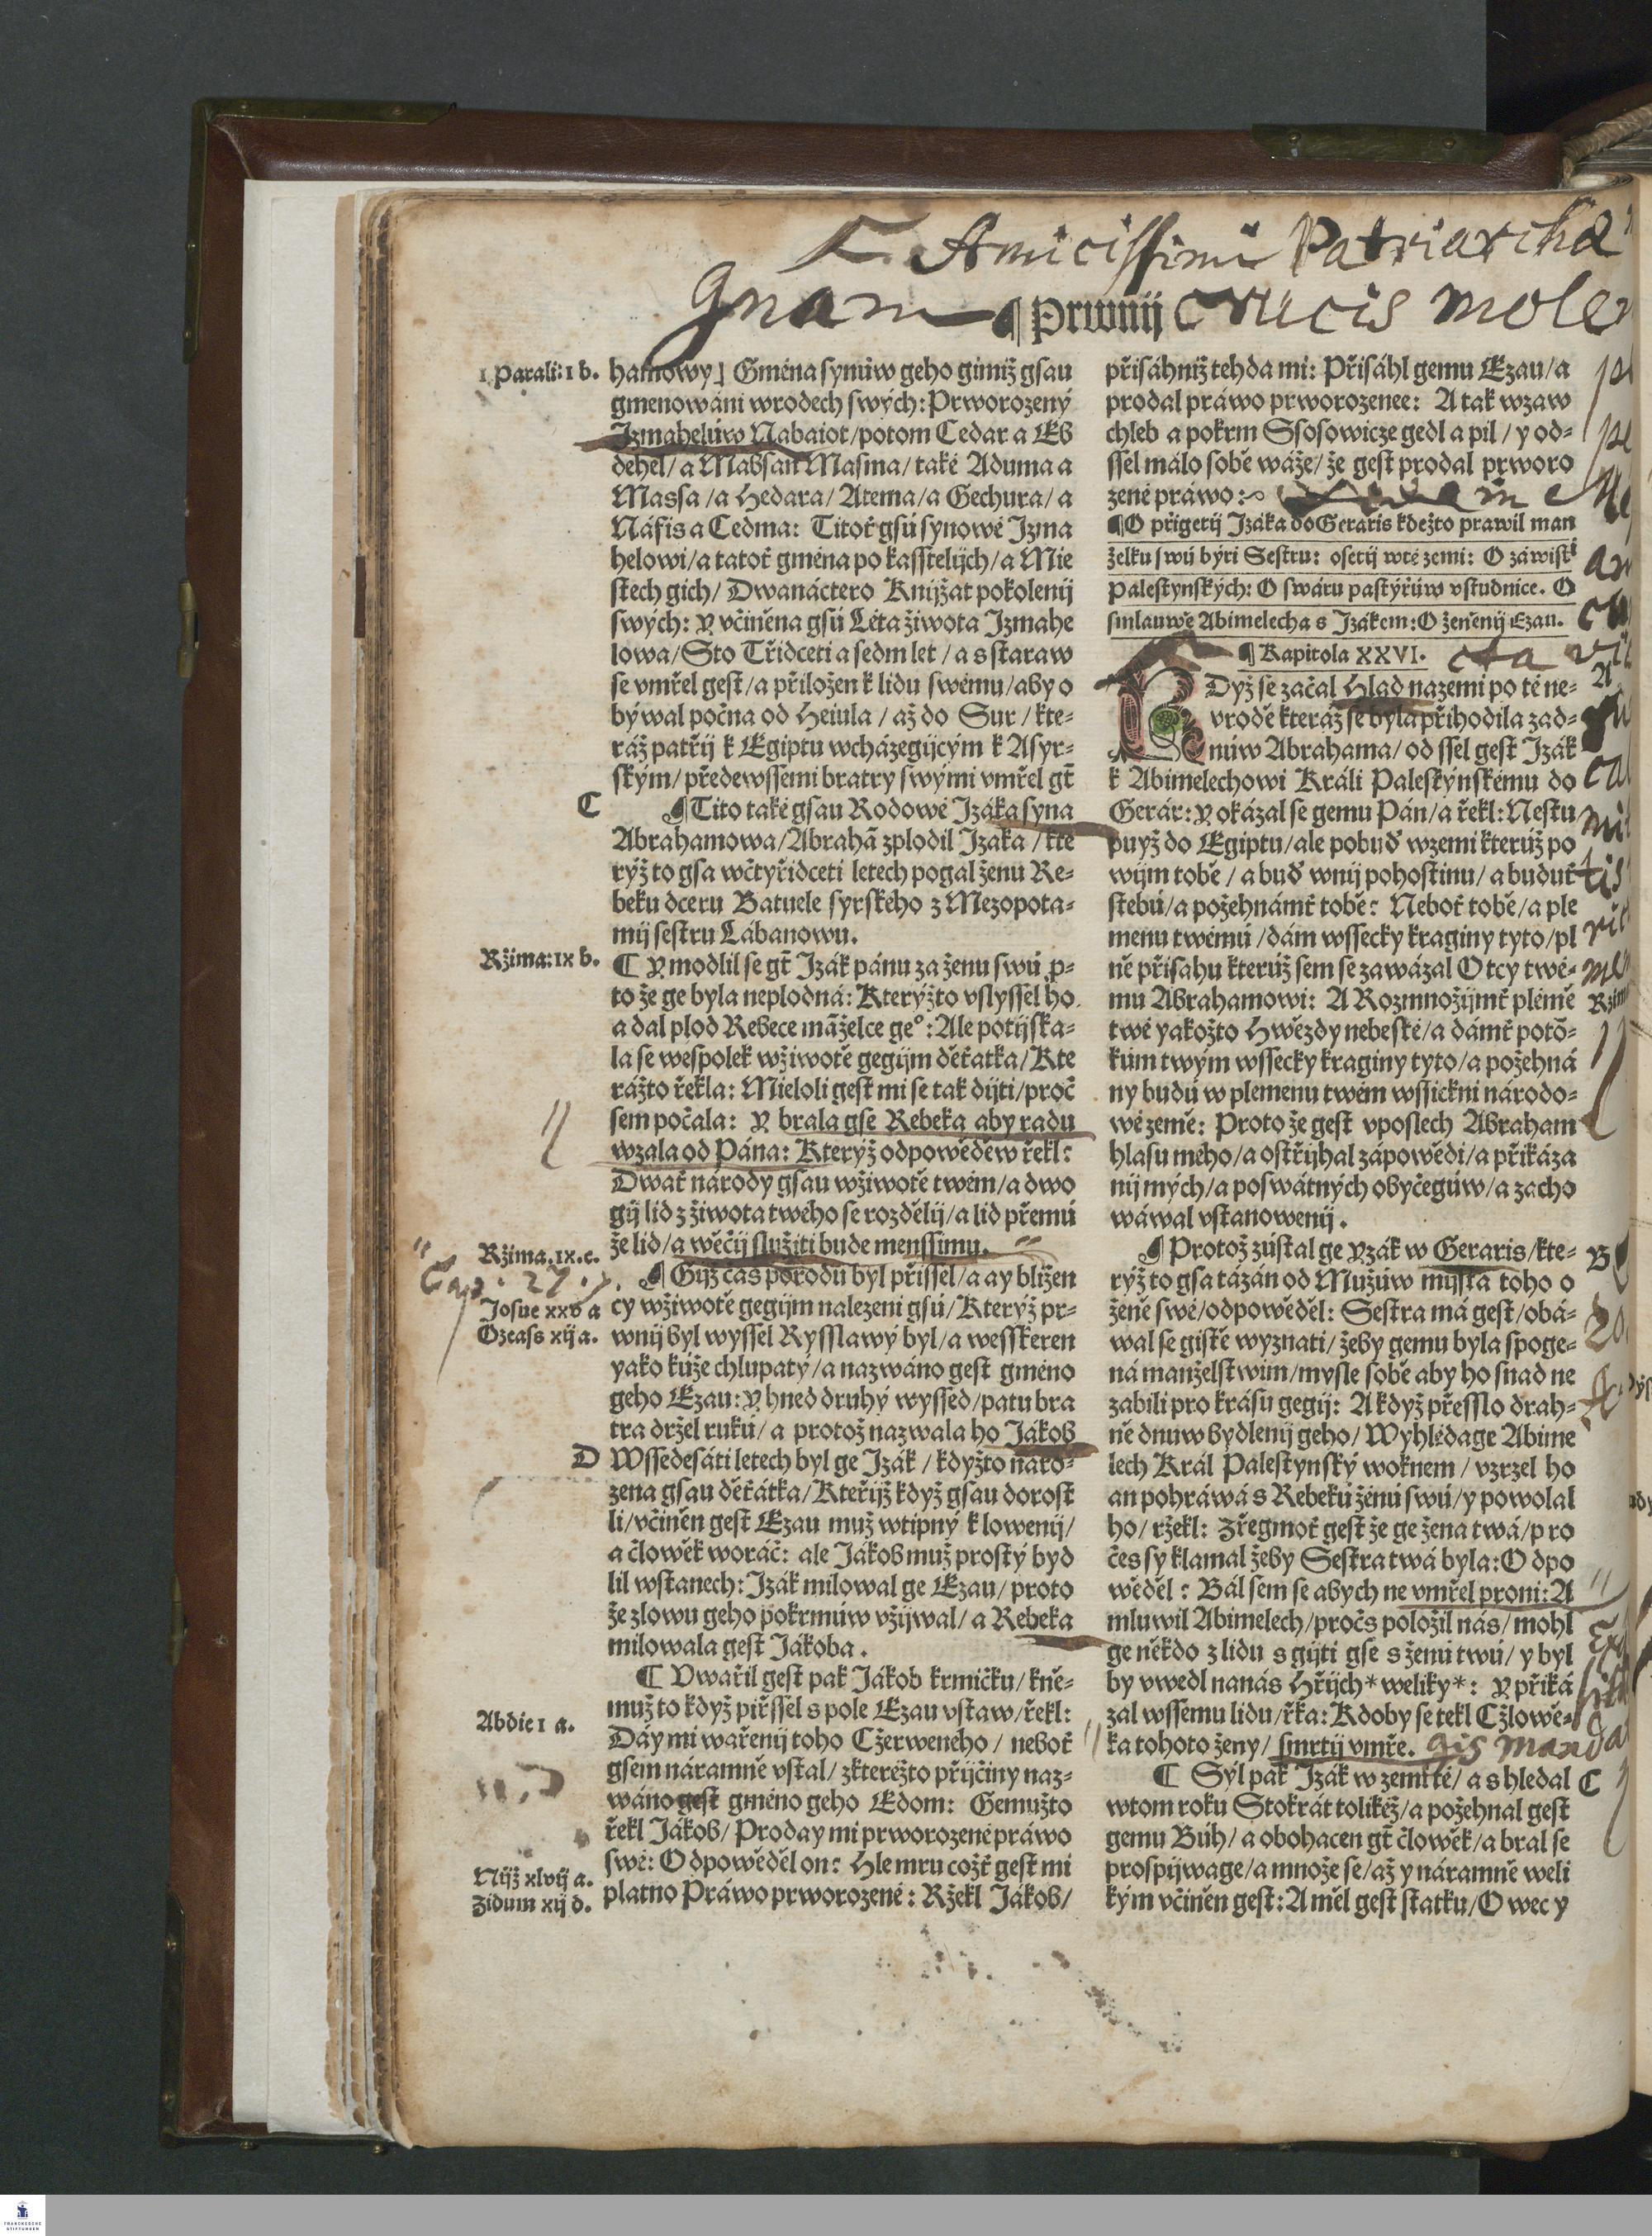 Amicissimi Patriarcha
gnam ¶ Prwnij crucis mole
1 Parali: 1 b.
hamowy] Gména synůw geho gimiž gsau
gmenowáni wrodech swých: Prworozený
Izmahelůw Nabaiot/potom Cedar a Eb
dehel/a Mabsan Masma/také Aduma a
Massa/a Hedara/Atema/a Gechura/a
Náfis a Cedma: Titoť gsú synowé Izma
helowi/a tatoť gména po kasstelijch/a Mie
stech gich/Dwanáctero Knijžat pokolenij
swých: Y včiněna gsú Léta života Izmahe
lowa/Sto Třidceti a sedm let/a s staraw
se vmřel gest/a přiložen k lidu swému/aby o
býwal počna od Heiula/až do Sur/kte-
ráž patřij k Egiptu wcházegijcým k Asyr-
ským/předewssemi bratry swými vmřel gt̃
C
¶ Tito také gsau Rodowé Izáka syna
Abrahamowa/Abrahã zplodil Izaka/kte
rýž to gsa wčtyřidceti letech pogal ženu Re-
beku dceru Batuele syrského z Mezopota-
mij sestru Lábanowu.
Ržima: IX b.
¶ Y modlil se gt̃ Izák pánu za ženu swú p-
to že ge byla neplodná: Kterýžto vslyssel ho
a dal plod Rebece mãželce ge°: Ale potijska-
la se wespolek wžiwotě gegijm děťatka/Kte
rážto řekla: Mieloli gest mi se tak dijti/proč
sem počala: Y brala gse Rebeka aby radu
wzala od Pána: Kterýž odpowěděw řekl:
Dwať národy gsau wžiwotě twém/a dwo
gij lid z života twého se rozdělij/a lid přemú
že lid/a wěčij služiti bude menssimu.
Ržima. IX. c.
Cap. 27.
¶ Gijž čas porodu byl přissel/a ay bližen
Josue XXV a
cy wžiwotě gegijm nalezeni gsú/Kterýž pr-
Ozeass xij a.
wnij byl wyssel Rysslawý byl/a wesskeren
yako kúže chlupatý/a nazwáno gest gméno
geho Ezau: Y hned druhý wyssed/patu bra
tra držel rukú/a protož nazwala ho Jákob
D
Wssedesáti letech byl ge Izák/kdyžto naro-
zena gsau děťátka/Kteřijž když gsau dorost
li/včiněn gest Ezau muž wtipný k lowenij/
a člowěk woráč: ale Jákob muž prostý byd
lil wstanech: Izák milowal ge Ezau/proto
že zlowu geho pokrmúw vžijwal/a Rebeka
milowala gest Jákoba.
¶ Vwařil gest pak Jákob krmičku/kně-
muž to když piřssel s pole Ezau vstaw/řekl:
Abdie 1 a.
Dáy mi wařenij toho Cžerweneho/neboť
gsem náramně vstal/zkteréžto přijčiny naz-
wáno gest gméno geho Edom: Gemužto
řekl Jákob/Proday mi prworozené práwo
swé: Odpowěděl on: Hle mru cožť gest mi
Nijž xlvij a.
platno Práwo prworozené: Ržekl Jákob/
Židum xij d.
přisáhniž tehda mi: Přisáhl gemu Ezau/a
prodal práwo prworozenee: A tak wzaw
chleb a pokrm Ssosowicze gedl a pil/y od-
ssel málo sobě wáže/že gest prodal prworo
zené práwo:
¶ O přigetij Izáka do Geraris kdežto prawil man
želku swú býti Sestru: osetij wté zemi: O záwisti
Palestynských: O swáru pastýřúw vstudnice. O
smlauwě Abimelecha s Izákem: O ženěnij Ezau.
¶ Kapitola XXVI.
A
KDyž se začal Hlad nazemi po té ne-
vrodě kteráž se byla přihodila zad-
núw Abrahama/od ssel gest Izák
k Abimelechowi Králi Palestýnskému do
Gerár: Y okázal se gemu Pán/a řekl: Nestu
puyž do Egiptu/ale pobuď wzemi kterúž po
wijm tobě/a buď wnij pohostinu/a buduť
stebú/a požehnámť tobě: Neboť tobě/a ple
menu twému/dám wssecky kraginy tyto/pl
ně přisahu kterúž sem se zawázal Otcy twé-
mu Abrahamowi: A Rozmnožijmť plémě
twé yakožto Hwězdy nebeské/a dámť potõ-
kúm twým wssecky kraginy tyto/a požehná
ny budú w plemenu twém wssickni národo-
wé země: Proto že gest vposlech Abraham
hlasu mého/a ostřijhal zápowědi/a přikáza
nij mých/a poswátných obyčegúw/a zacho
wáwal vstanowenij.
¶ Protož zústal ge Yzák w Geraris/kte-
B
rýž to gsa tázán od Mužúw mijsta toho o
ženě swé/odpowěděl: Sestra má gest/obá-
wal se gisťe wyznati/žeby gemu byla spoge-
ná manželstwim/mysle sobě aby ho snad ne
zabili pro krásu gegij: A když přesslo drah-
ně dnuw bydlenij geho/Wyhlédage Abime
lech Král Palestynský woknem/vzrzel ho
an pohráwá s Rebekú ženú swú/y powolal
ho/ržekl: Zřegmoť gest že ge žena twá/pro
čes sy klamal žeby Sestra twá byla: Odpo
wěděl: Bál sem se abych ne vmřel proni: A
mluwil Abimelech/pročs položil nás/mohl
ge někdo z lidu s gijti gse s ženú twú/y byl
by vwedl nanás Hřijch* weliky*: Y přiká
zal wssemu lidu/řka: Kdoby se tekl Cžlowě-
ka tohoto ženy/smrtij vmře.
¶ Syl pak Izák w zemi té/a shledal
C
wtom roku Stokrát tolikéž/a požehnal gest
gemu Búh/a obohacen gt̃ člowěk/a bral se
prospijwage/a množe se/až y náramně weli
kým včiněn gest: A měl gest statku/Owec y
FRANCKESCHE
STIFTUNGEN